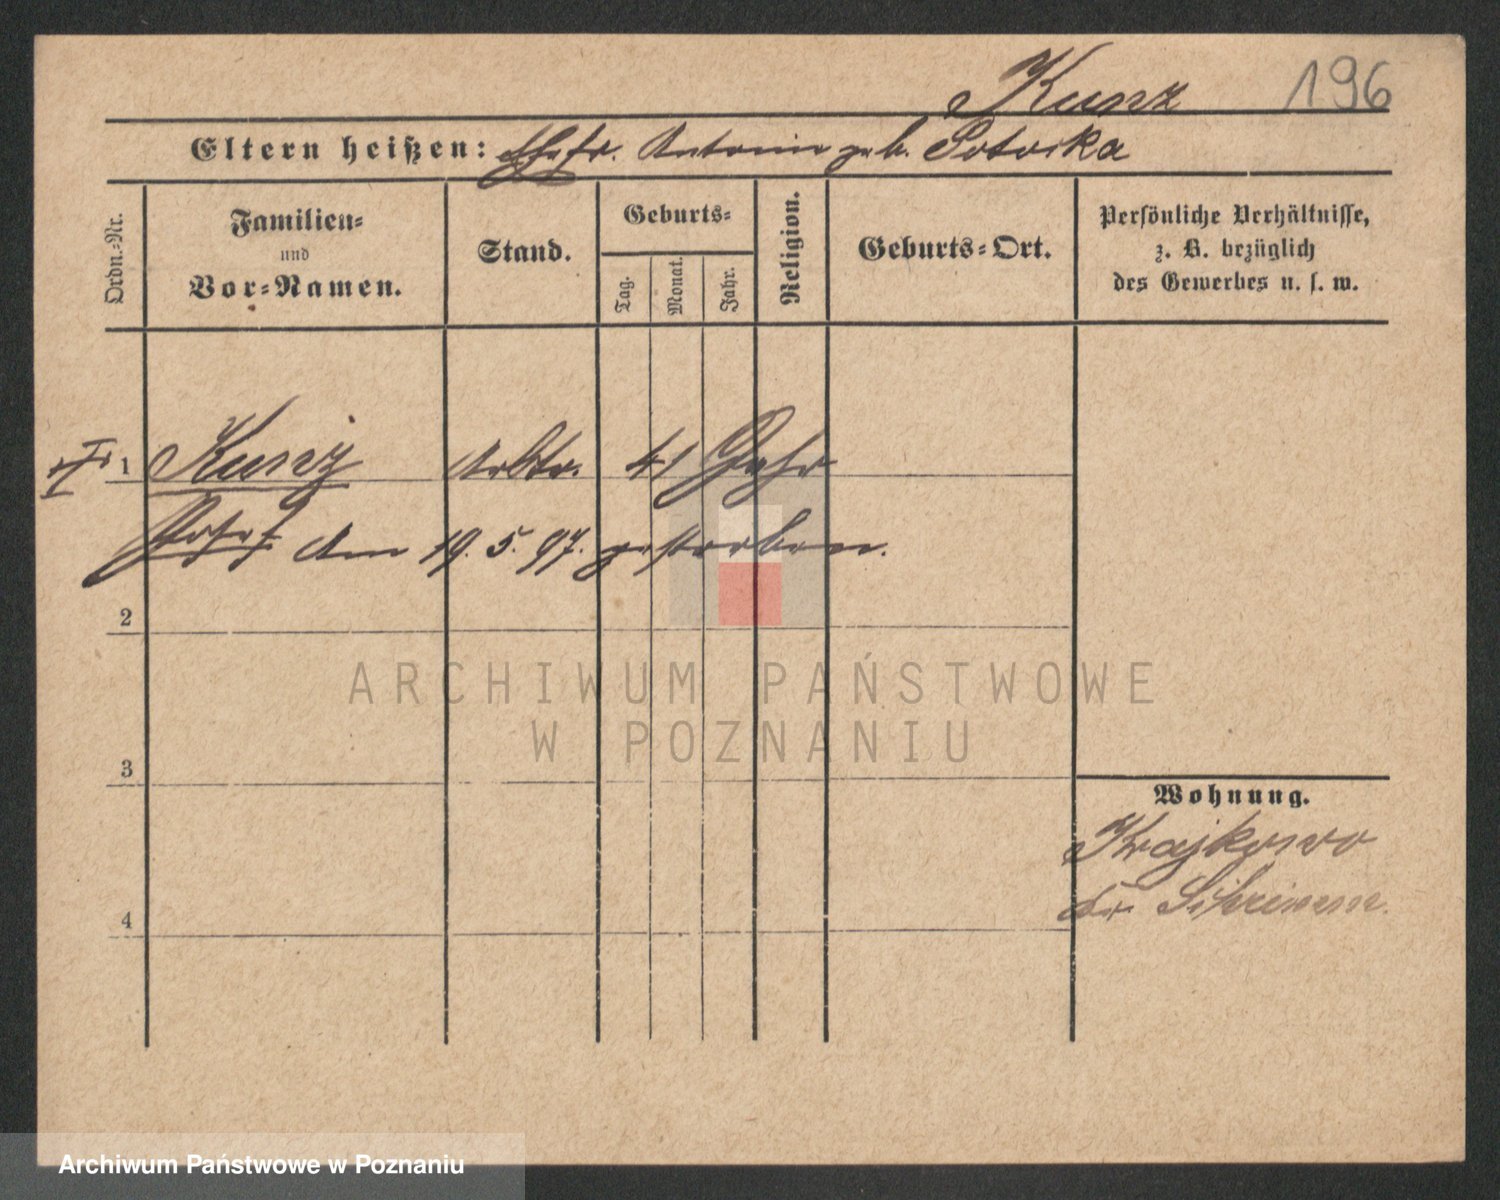 Kunz 196
Eltern heißen: Ehefr. Antonie geb.
Ordn.-Nr.
Familien-
und
Vor-Namen.
Stand.
Geburts-
Tag.
Monat.
Jahr.
Religion.
Geburts-Ort.
Persönliche Verhältnisse,
z. B. bezüglich
des Gewerbes u. s. w.
1 Kunz Arbtr. 41 Jahr
Josef Am 19. 5. 97. gestorben.
2
ARCHIWUM PAŃSTWOWE
W POZNANIU
3
Wohnung.
Krajkowo
4
Archiwum Państwowe w Poznaniu